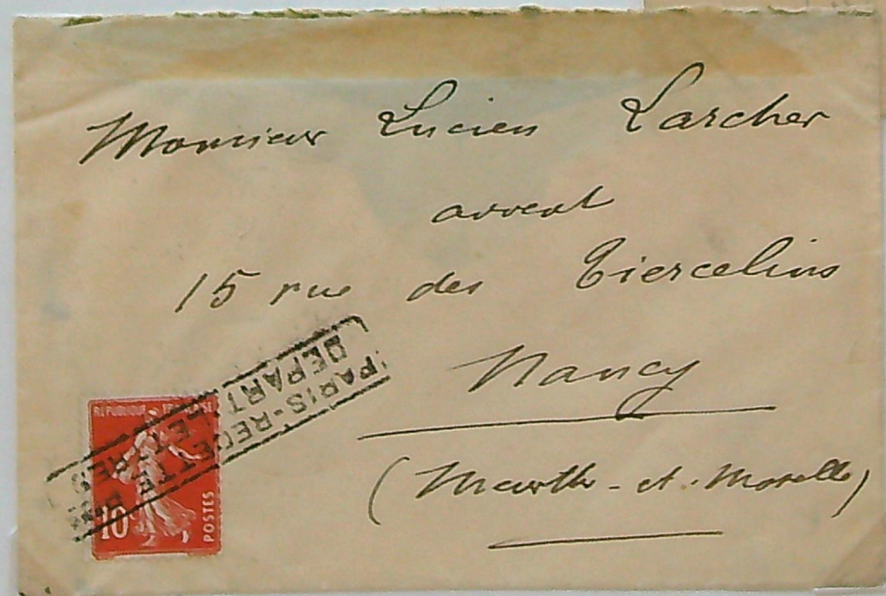 Monsieur Lucien Larcher
avocat
15 rue des Tiercelins
Nancy
(Meurthe-et-Moselle)
PARIS-RECETTE
DEPART LETTRES
RÉPUBLIQUE FRANÇAISE
10
POSTES